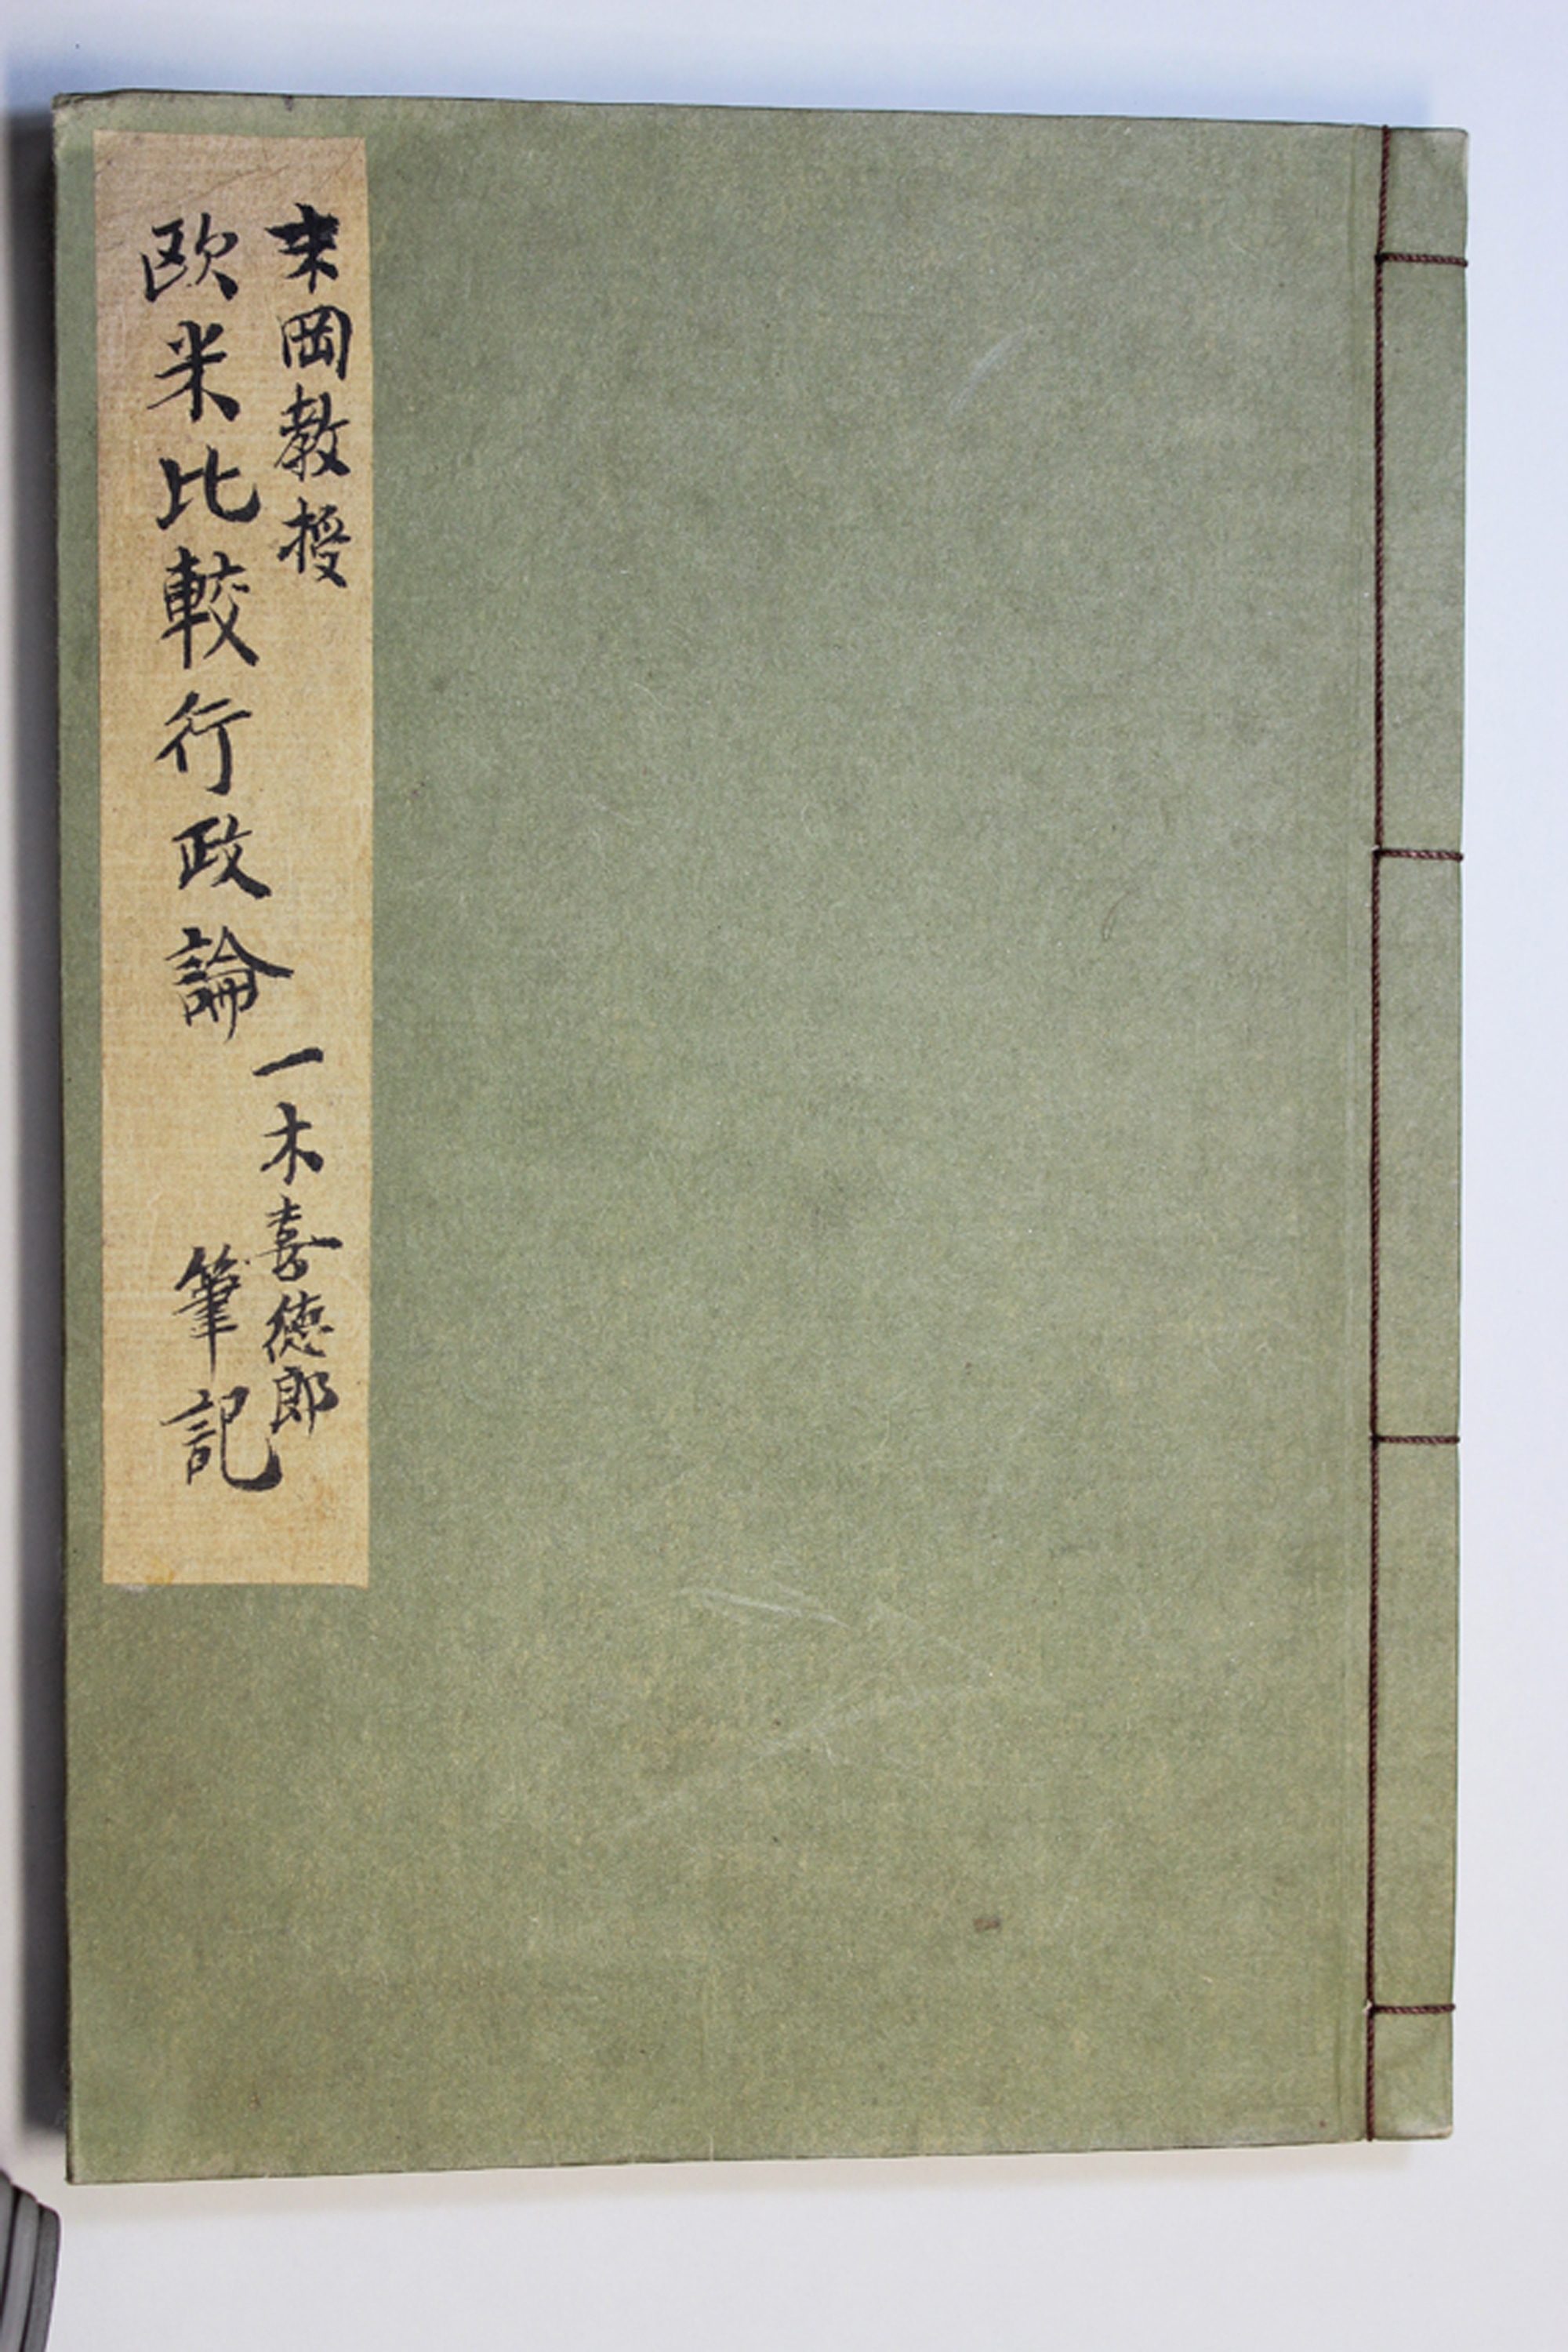 末岡教授
欧米比較行政論
一木喜徳郎
筆記